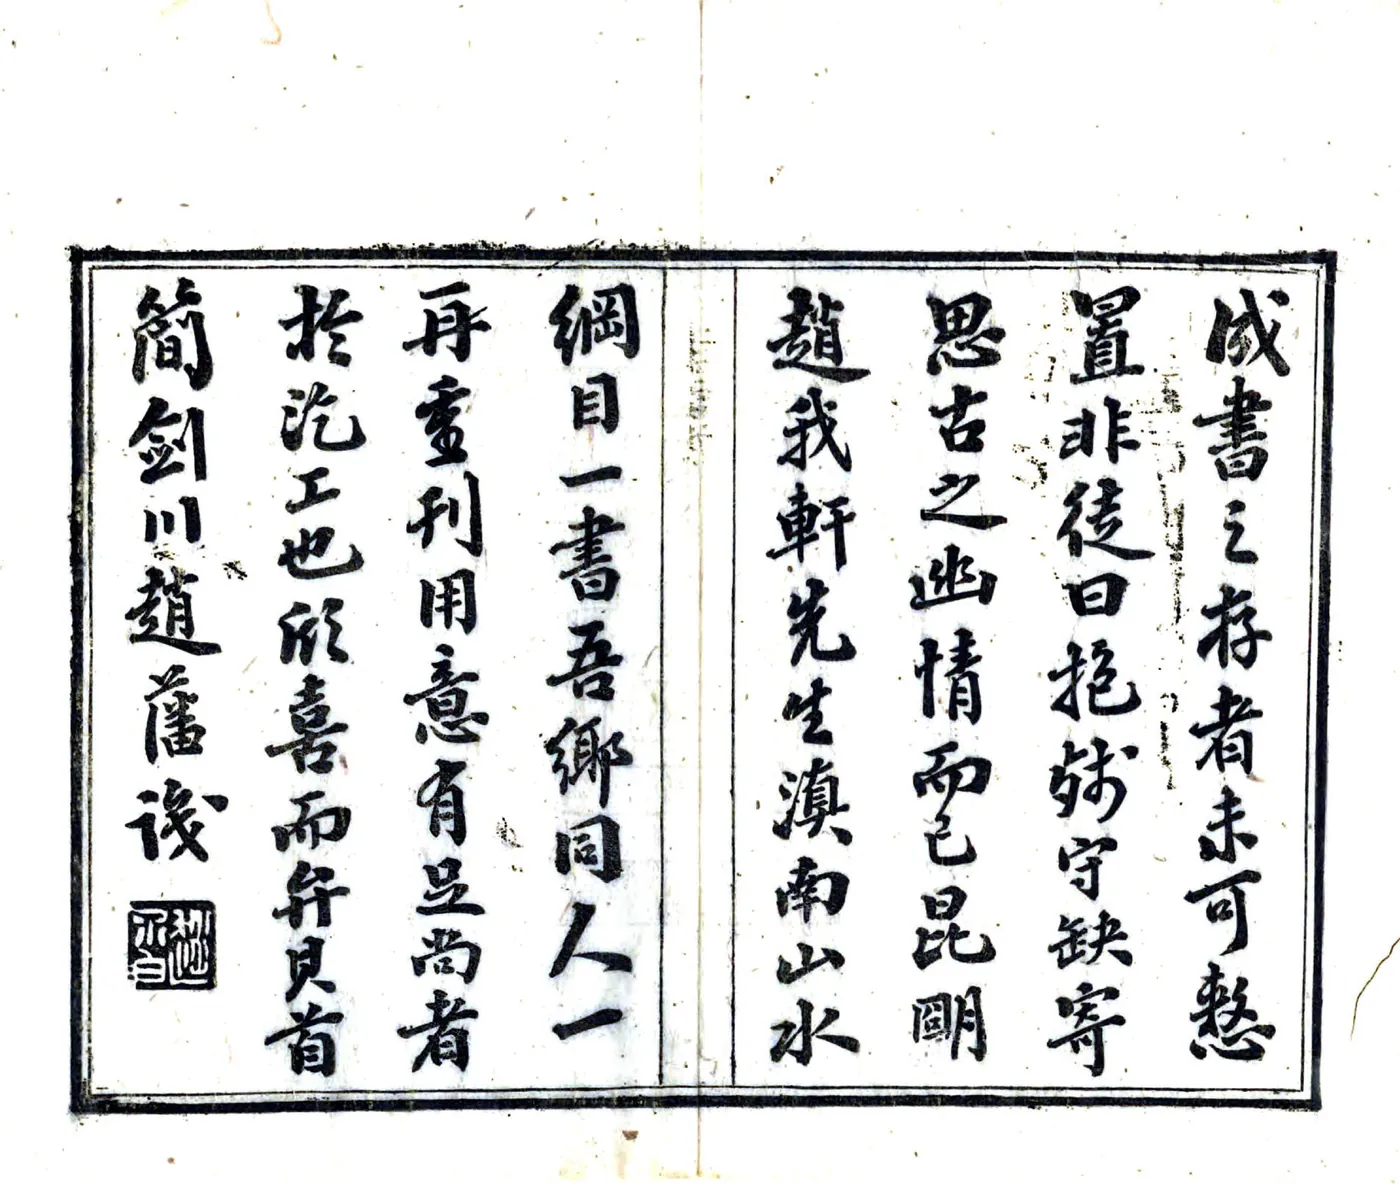 成書之存者未可憗
置非徒曰抱殘守缺寄
思古之幽情而已昆朙
趙我軒先生滇南山水
綱目一書吾鄉同人一
再重刊用意有足尚者
於汔工也欣喜而弁其首
簡劍川趙藩識